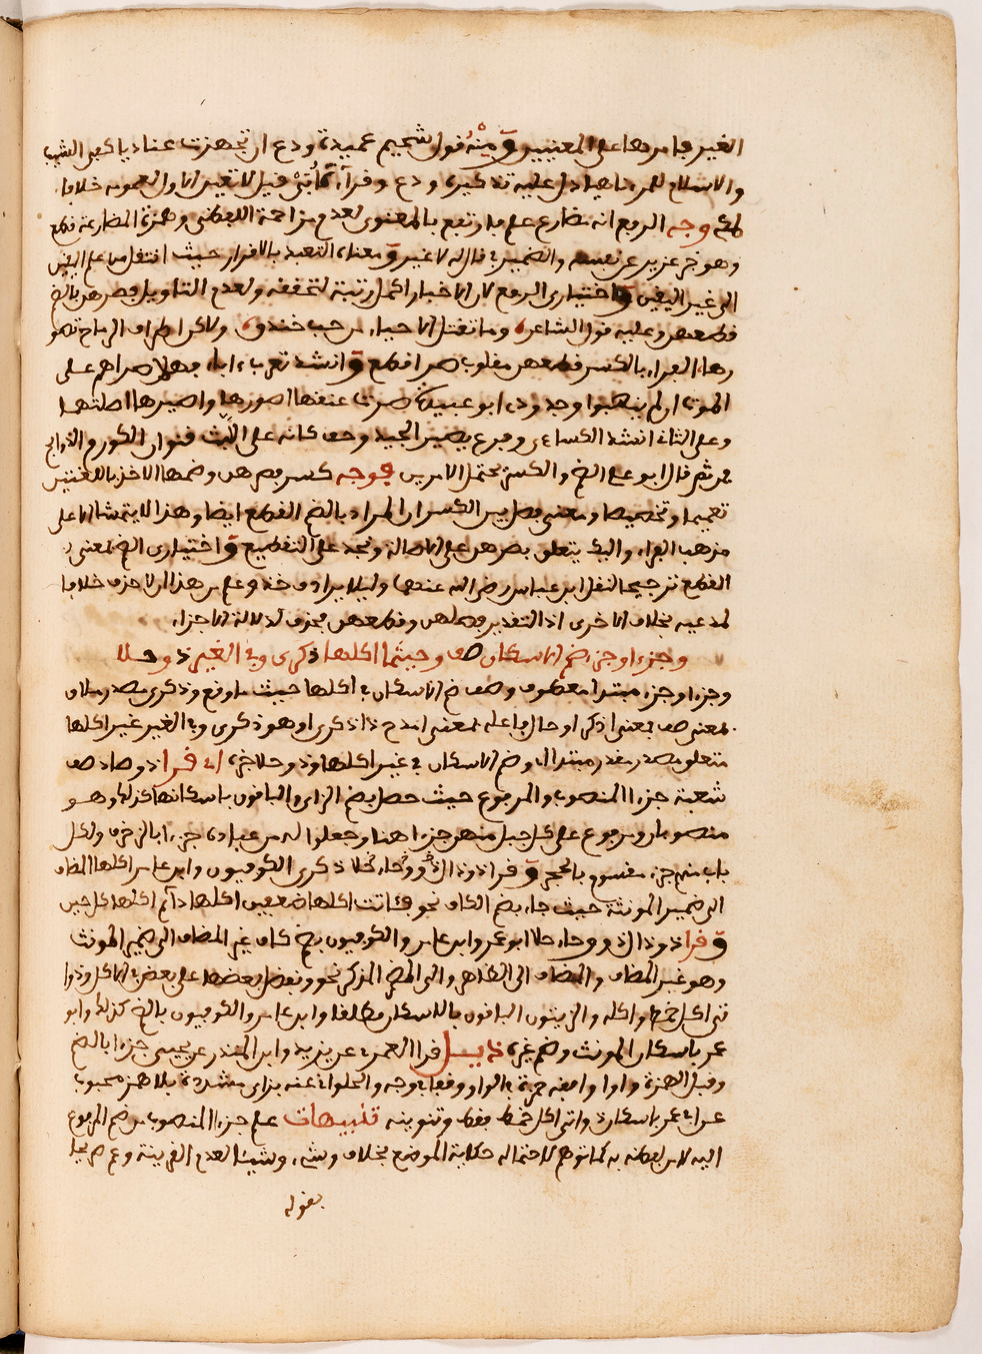 الغير فامرهما على المعنيين ومنه قول سحيم عميرة ودع ان تجهزت غاديا كفى الشيب
والاسلام للمر ناهيا دل عليه تذكير ودع وقرآء قيل لا تعين الاول لعمومه خلافا
لمكي وجه الرفع انه مضارع علم فارتفع بالمعنوي لعدم مزاحمة اللفظي وهمزة المضارعة قطع
وهو خبر عزير عن نفسه والضمير في قال له لا غير ومعناه التعبد بالاقرار حيث انتقل من علم اليقين
الى عين اليقين واختياري الرفع لان الاخبار اكمل رتبة لتحققه ولعدم التاويل فصرهن بالضم
قطعهن وعليه قول الشاعر وما تقتل الاحياء من حب خندف ولاكن اطراف الرماح تصو
رها الفراء بالكسر قطعهن مقلوب صرا قطع وانشد تعرب اباء فهلا صراهم على
الموت ان لم يذهبوا وجدود ابو عبيدة صرت عنقها اصورها واصيرها املتها
وعلى الثاني انشد الكساءي وفرع يصير الجيد وحف كانه على الليث قنوان الكروم الدوالح
من ثم قال ابو علي الضم والكسر يحتمل الامرين فوجه كسر فصرهن وضمها الاخذ باللغتين
تعميما وتخصيصا ومعنى فصل بين الكسر ان المراد بالضم القطع ايضا وهذا لا يتمشا الا على
مذهب الفراء واليك يتعلق بصرهن على الامالة وبخذ على التقطيع واختياري الضم بمعنى
القطع ترجيحا لنقل ابن عباس رضي الله عنهما وليلا يرادف خذ وعلم من هذا ان لا حذف خلافا
لمدعيه بخلاف الاخرى اذ التقدير فصلهن وقطعهن بحذف لدلالة الاجزاء
وجزءا وجزء ضم الاسكان صف وحيثما اكلها ذكرى وفي الغير ذو حلا
وجزءا وجزء مبتدا معطوف وصف ضم الاسكان في اكلها حيث ما وقع وذكرى مصدر ملاق
لمعنى صف بمعنى اذكر او حال فاعله بمعنى امدح ذا ذكرى او هو ذكرى وفي الغير غير اكلها
متعلق بصدر مقدر مبتدا اي وضم الاسكان في غير اكلها وذو حلا خبره اي قرا ذو صاد صف
شعبة جزءا المنصوب والمرفوع حيث حصل بضم الزاي والباقون باسكانها كزلك وهو
منصوبان ومرفوع على كل جبل منهن جزءا هنا وجعلوا له من عباده جزءا بالزخرف ولكل
باب منهم جزء مقسوم بالحجر وقرا ذو ذال ذكرى وحاء حلا ذكرى الكوفيون وابن عامر اكلها المضاف
الى ضمير المونثة حيث جاء بضم الكاف نحو فئاتت اكلها ضعفين اكلها دآئم اكلها كل حين
وقرا ذو ذال ذو وحاء حلا ابو عمر وابن عامر والكوفيون بضم كاف غير المضاف الى ضمير المونث
وهو غير المضاف والمضاف الى الظاهر والى المضمر المذكر نحو ونفضل بعضها على بعض في الاكل وذواتي
اكل خمط واكله والزيتون الباقون بالاسكان مطلقا وابن عامر والكوفيون بالضم كزلك وابو
عمر باسكان المونث وضم غيره ذيـل قرا العمري عن يزيد وابن المنذر عن يحيى جزءا بالضم
وقبل الهمزة واوا وافقه حمزة بالواو وقفا في وجه والحلواني عنه بزاي مشددة بلا همز محبوب
عن ابي عمر باسكان واتى اكل خمط بفك وتنوينه تنبيهات علم جزءا المنصوب من ضم المرفوع
اليه لا من لفظه به كما توهم لاحتماله حكاية الموضع بخلاف وشيء وشيئا لعدم القرينة وعم
بقوله